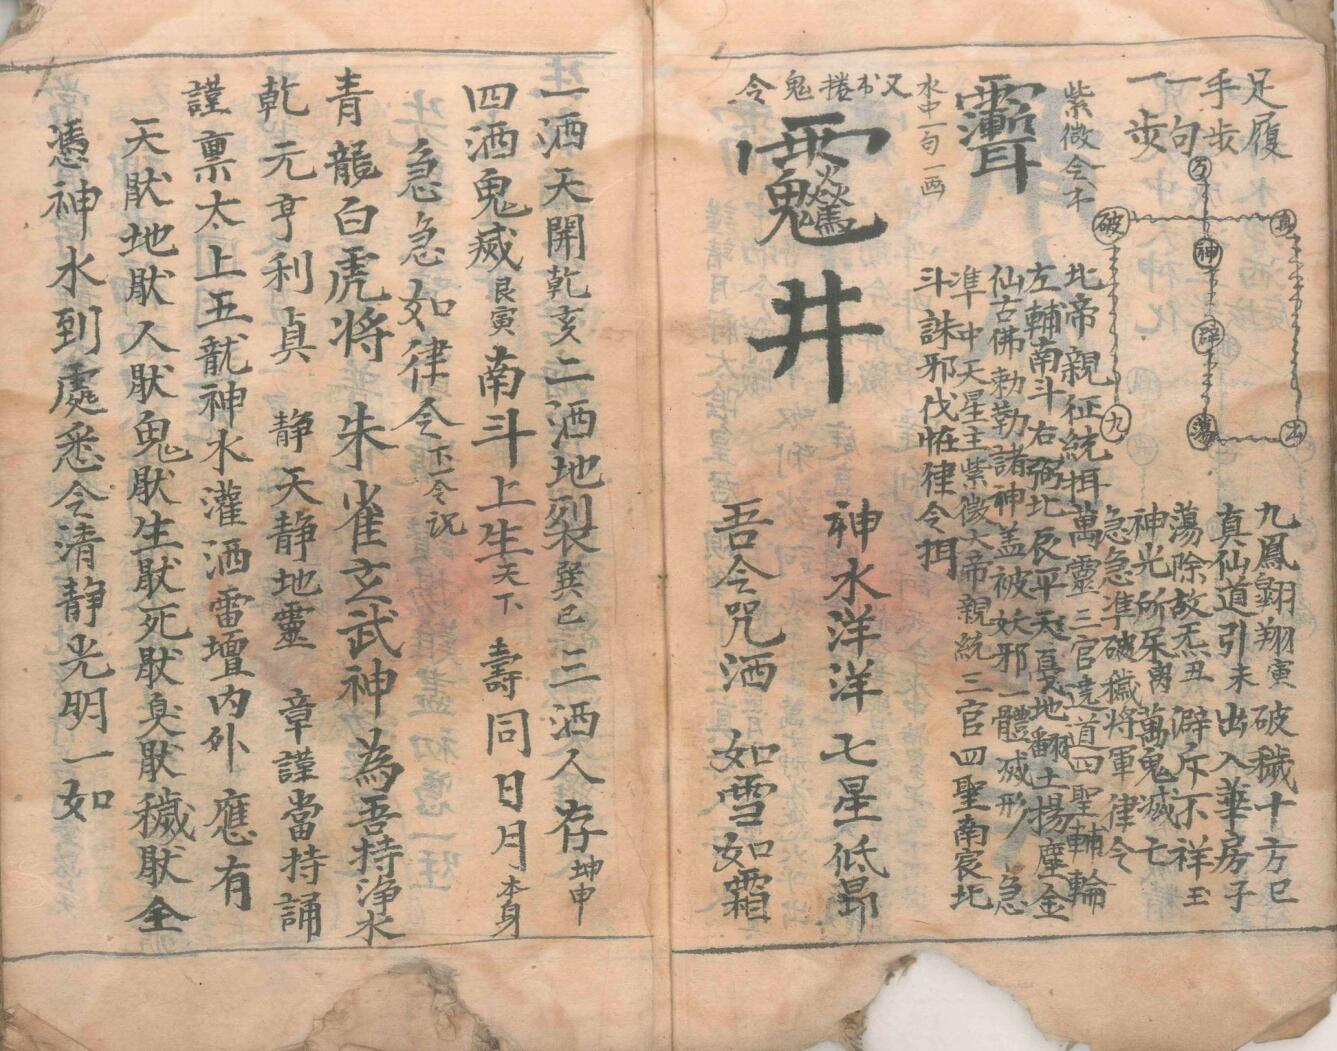 足履
手步
一句
一步
真
破
丂
神
辟
蕩
九
古
九鳳翺翔寅破穢十方巳
真仙道引未出入華房子
蕩除故炁丑澼斥不祥玉
神光所
萬鬼滅亡
急急準破穢將軍律令
紫微令
北帝親征統
萬靈三官
道四聖輔輪
左輔南斗右弼北辰平天
地翻土揚塵金
仙古佛勅勒諸神盖被妖邪一體滅形急
準中天星主紫微大帝親統三官四聖南宸北
斗誅邪伐恠律令
水中一句一画
又
捲鬼令
井
神水洋洋七星低昻
吾今咒洒如雪如霜
一洒天開乾亥二洒地裂巽巳三洒人存坤申
四洒鬼滅艮寅南斗上生天下壽同日月本身
急急如律令下一令
青龍白虎將朱雀玄武神為吾持净水
乾元亨利貞静天静地靈章謹當持誦
謹禀太上五龍神水灌洒雷壇内外應有
天猒地猒人猒鬼猒生猒死猒臭猒穢猒全
憑神水到處悉令清静光明一如